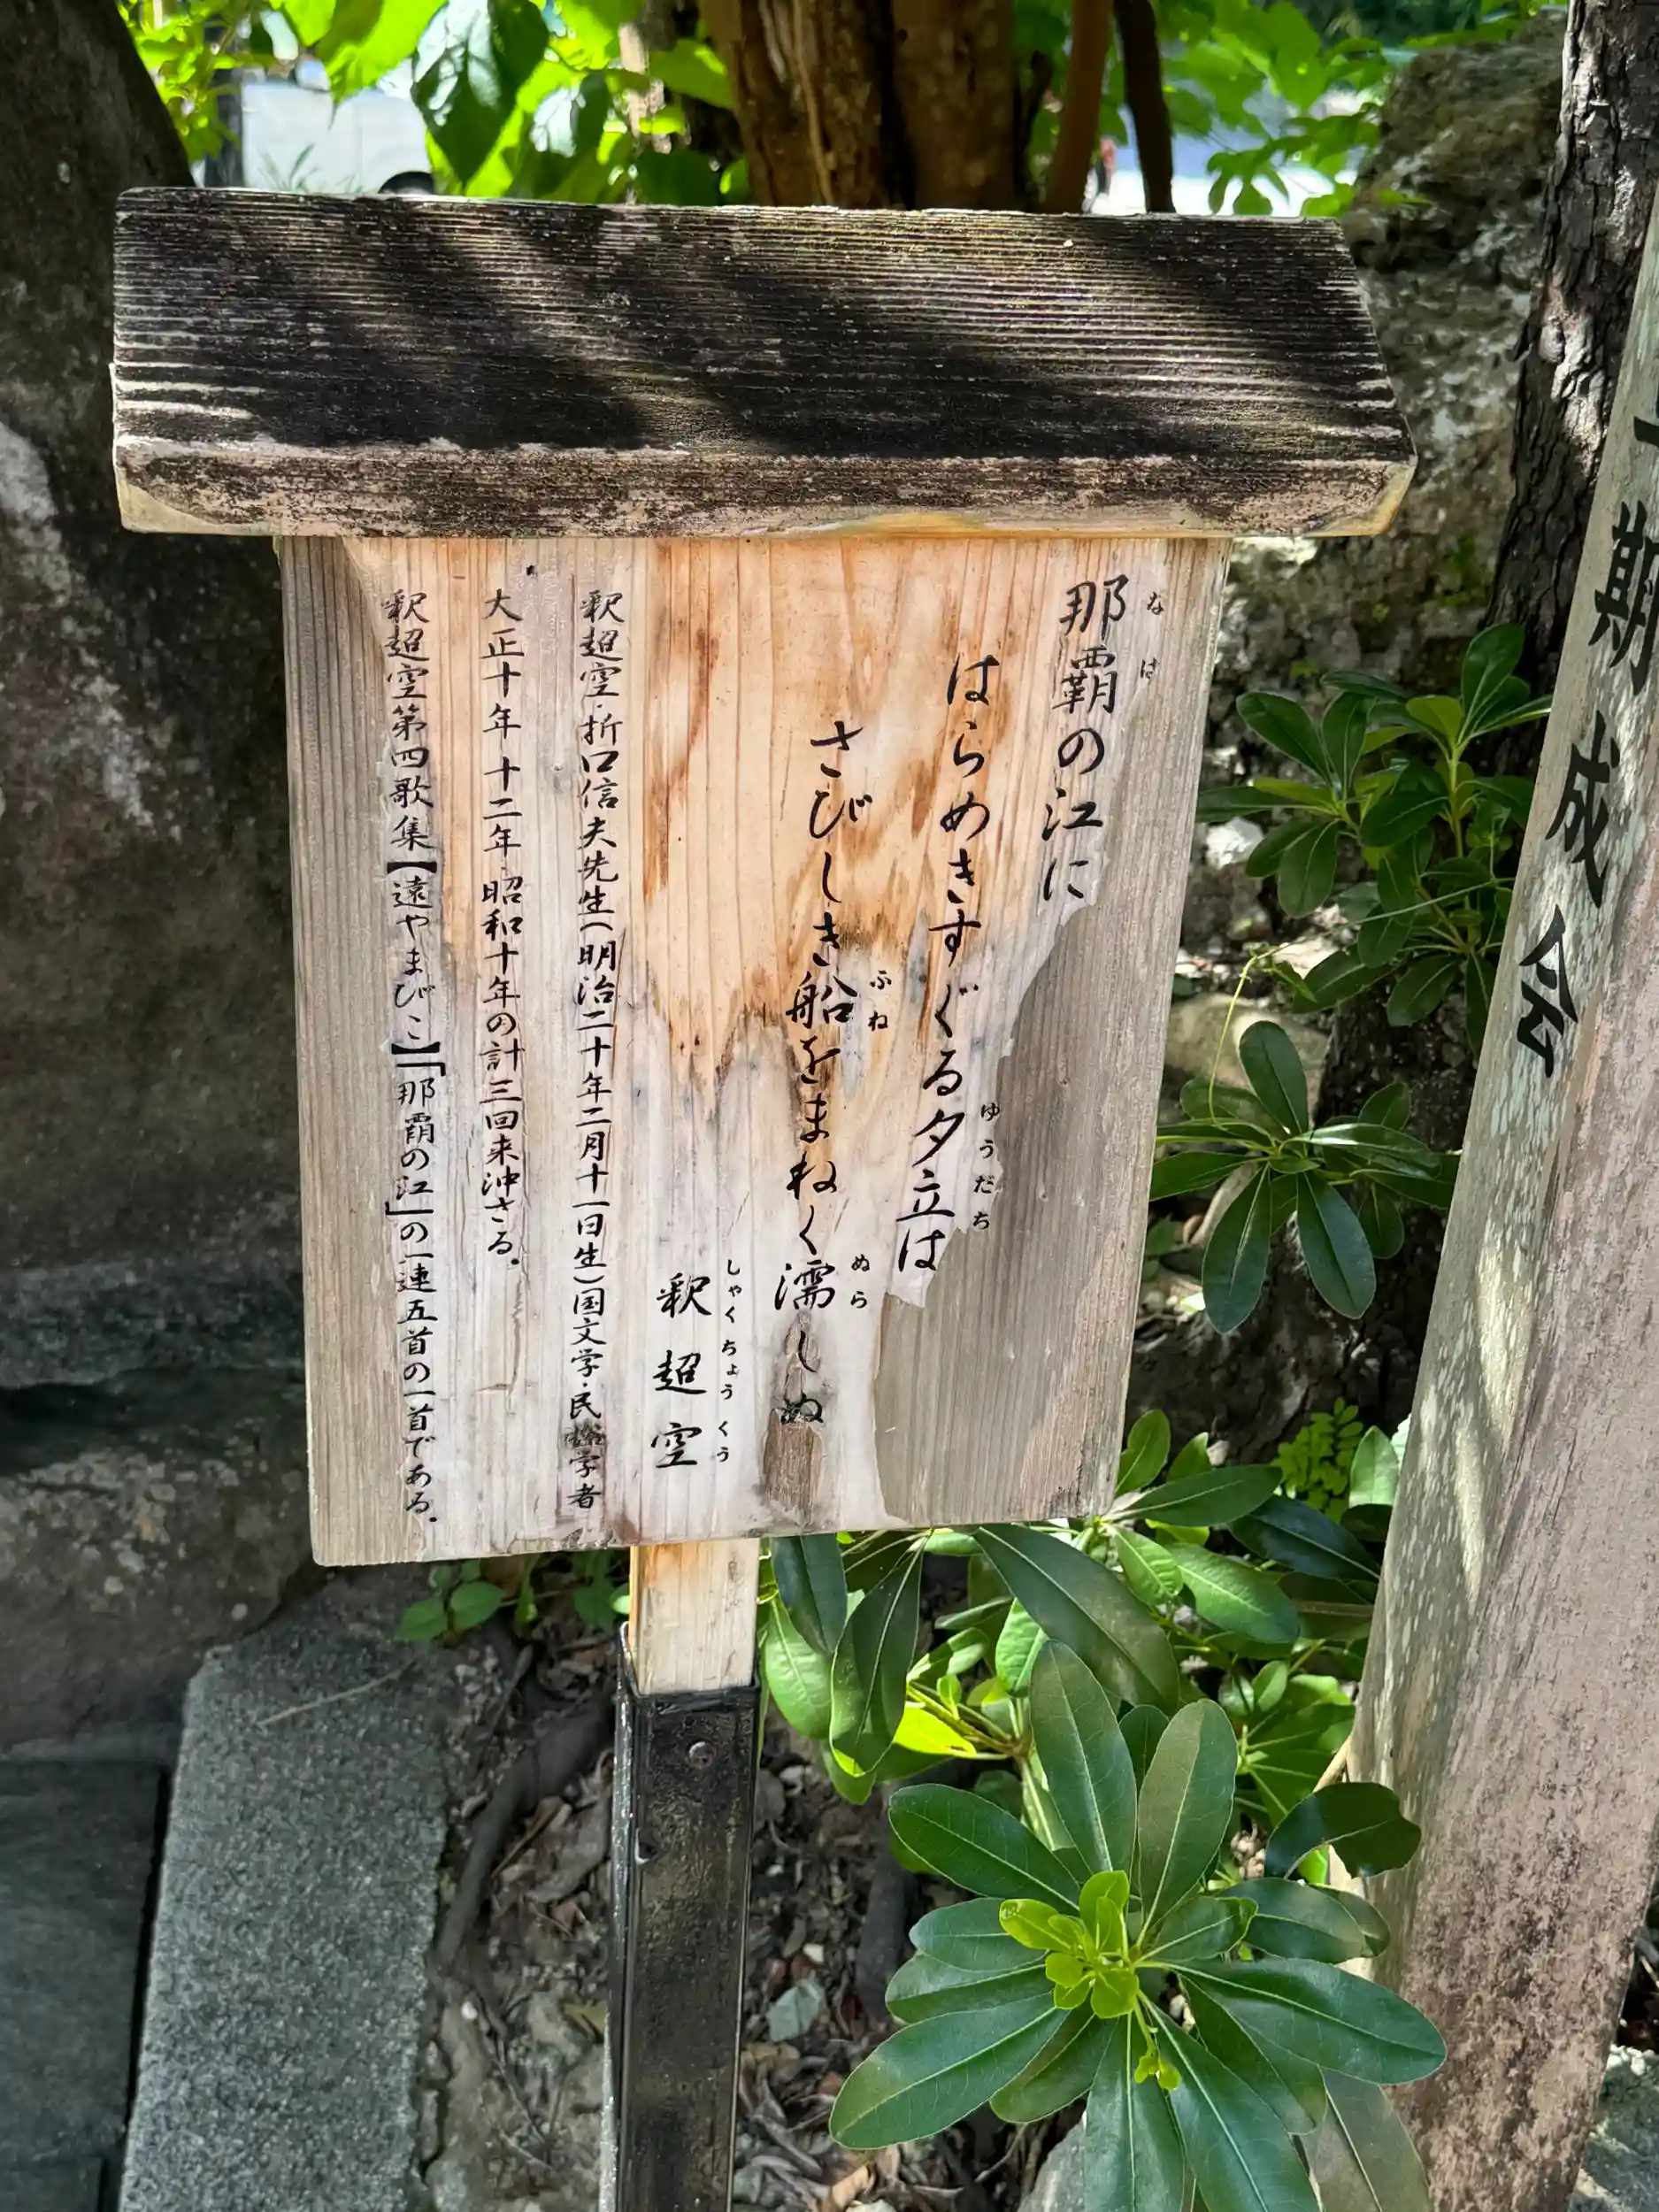 那覇の江に
なは
はらめきすぐる夕立は
ゆうだち
さびしき船をまねく濡しぬ
ふね
ぬら
釈超空
しゃくちょうくう
釈超空・折口信夫先生(明治二十年二月十一日生)国文学・民俗学者
大正十年十二年昭和十年の計三回来沖さる.
釈超空第四歌集【遠やまびこ】「那覇の江」の一連五首の一首である.
期成会